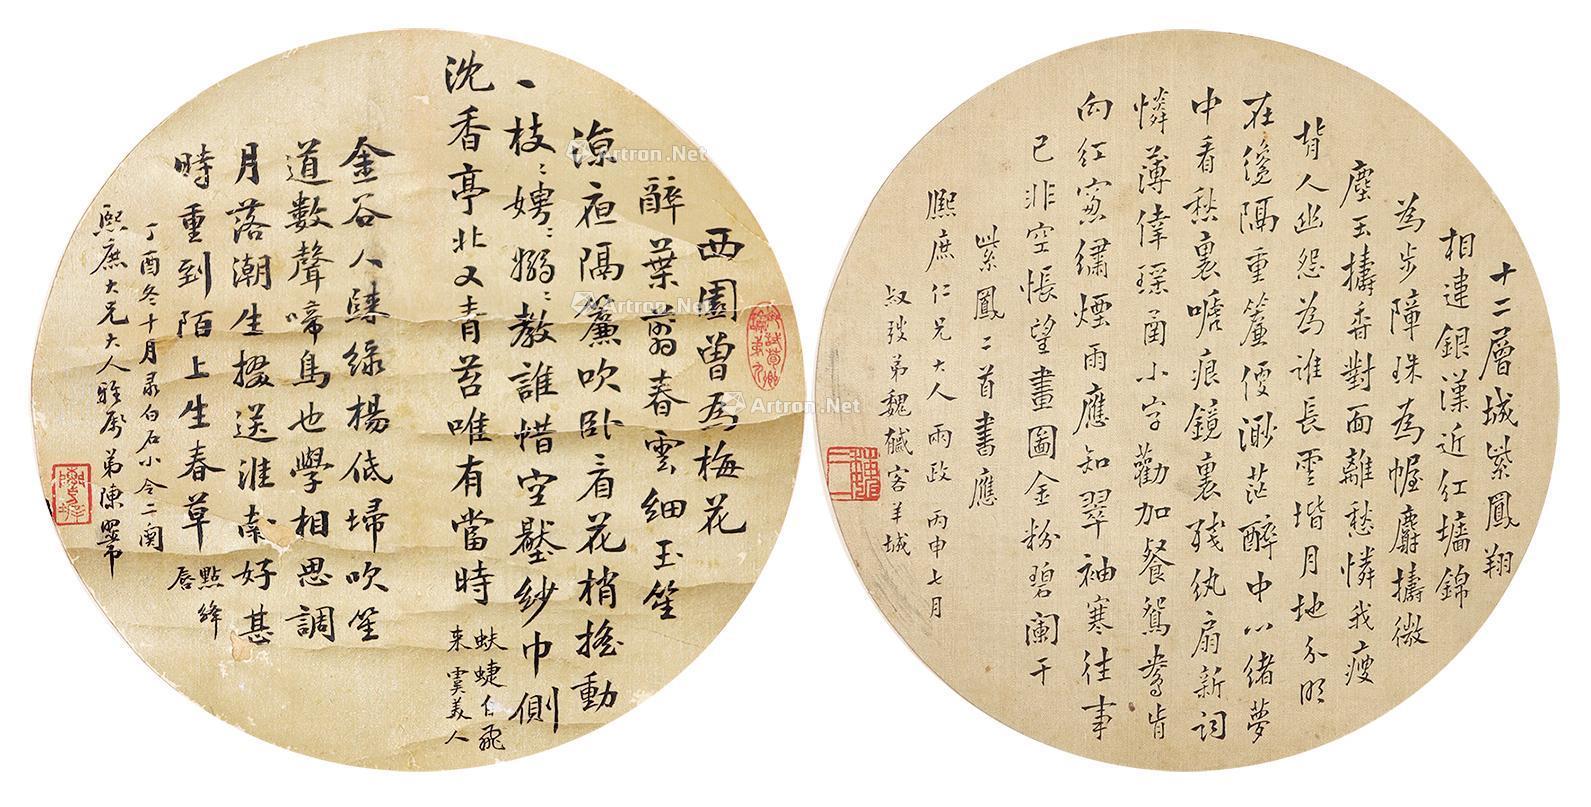 西園曾為梅花
醉葉翦春雲細玉笙
涼夜隔簾吹卧看花梢搖動
一枝〻娉〻嫋〻教誰惜空壓紗巾側
沈香亭北又青苔唯有當時
蛺蝶自飛
來 虞美人
金谷人歸綠楊低埽吹笙
道數聲啼鳥也學相思調
月落潮生掇送淮南好甚
時重到陌上生春草
點絳
唇
丁酉冬十月录白石小令二闋
熙庶大兄大人雅屬 弟陳
十二層城紫鳳翔
相連銀漢近紅墻錦
為步障珠為幄麝擣微
塵玉擣香對面離愁憐我瘦
背人幽怨為誰長雲堦月地分明
在後隔重簾便渺茫醉中心緒夢
中看愁裏嗁痕鏡裏殘紈扇新詞
憐薄倖瑤函小字勸加餐鴛鴦肯
向紅窗繡煙雨應知翠袖寒往事
已非空悵望畫圖金粉碧闌干
紫鳳二首書應
熙庶仁兄大人兩政 丙申七月
弟魏 客羊城
Artron.Net
Artron.Net
Artron.Net
Artron.Net
Artron.Net
Artron.Net